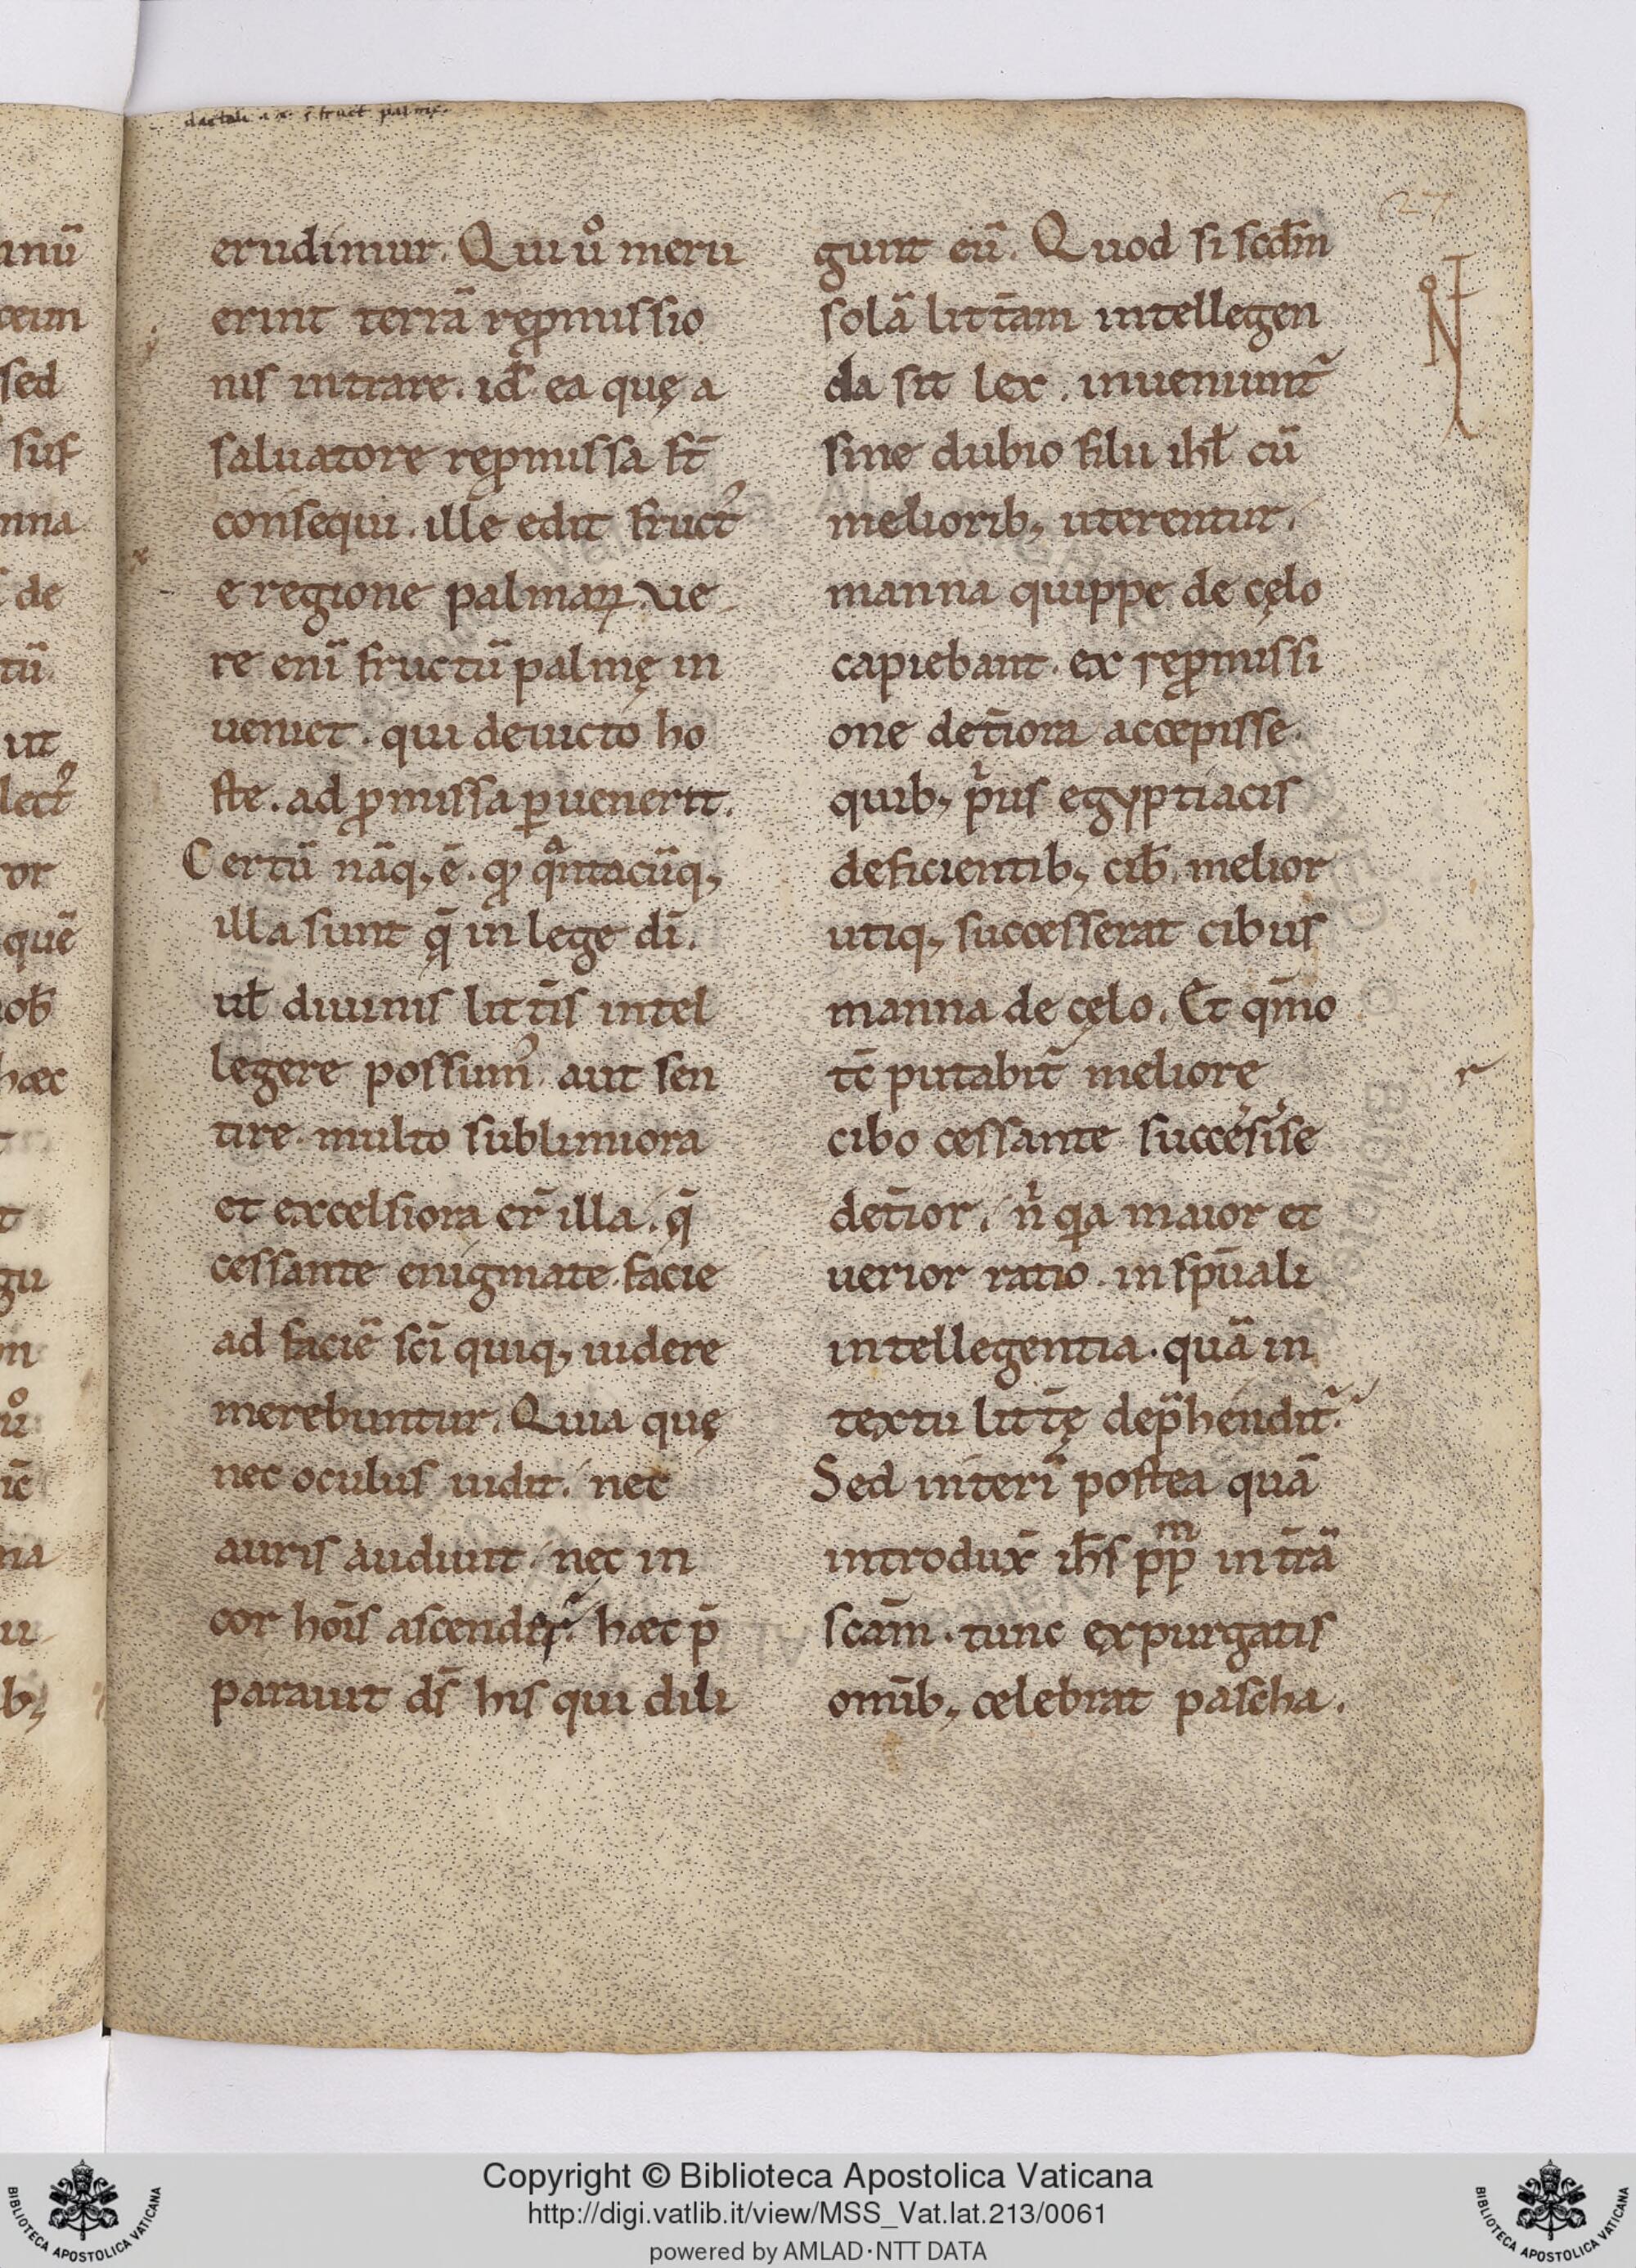 dactali .i. fruct palmę.
27
erudimur. Qui uͦ meru
erint terrā repmissio
nis intrare. id ē ea quę a
saluatore repmissa st̄
consequi. ille edit fruct᾽
e regione palmaꝝ. Ve
re enī fructū palmę in
ueniet. qui deuicto ho
ste. ad ꝓmissa ꝑuenerit.
Certū nāq; ē. qđ qͣntacūq;
illa sunt q̄ in lege dī.
ul̄ diuinis litt̄is intel
legere possum᾽. aut sen
tire. multo sublimiora
et excelsiora er̄ illa. q̄
cessante enigmate. facie
ad faciē scī quiq; uidere
merebuntur. Quia quę
nec oculus uidit. nec
auris audiuit. nec in
cor hoīs ascender̄. hæc p̄
parauit ds̄ his qui dili
gunt eū. Quod si scdm̄
solā litt̄am intellegen
da sit lex. inueniunt᷑
sine dubio filii ihl̄ cū
meliorib; uterentur.
manna quippe de cęlo
capiebant. ex reꝓmissi
one det̄iora accepisse.
quib; pͥus egyptiacis
deficientib; cib. melior
utiq; successerat cibus
manna de cęlo. Et qm̄o
tc̄ putabit᷑ meliore
cibo cessante succesisse
det̄ior. nͥ qa maior et
uerior ratio. in spūali
intellegentia. quā in
textu litt̄ę dep̄hendit᷑.
Sed interī postea quā
introdux̄ ihs̄ ppm̄ in t̄rā
scām. tunc expurgatis
omīb; celebrat pascha.
r
Copyright © Biblioteca Apostolica Vaticana
http://digi.vatlib.it/view/MSS_Vat.lat.213/0061
powered by AMLAD·NTT DATA
BIBLIOTECA APOSTOLICA VATICANA
BIBLIOTECA APOSTOLICA VATICANA